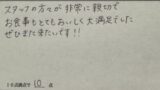 スタッフの方々が非常に親切で
お食事もとてもおいしく大満足でした
ぜひまた来たいです!!
10点満点中 10 点